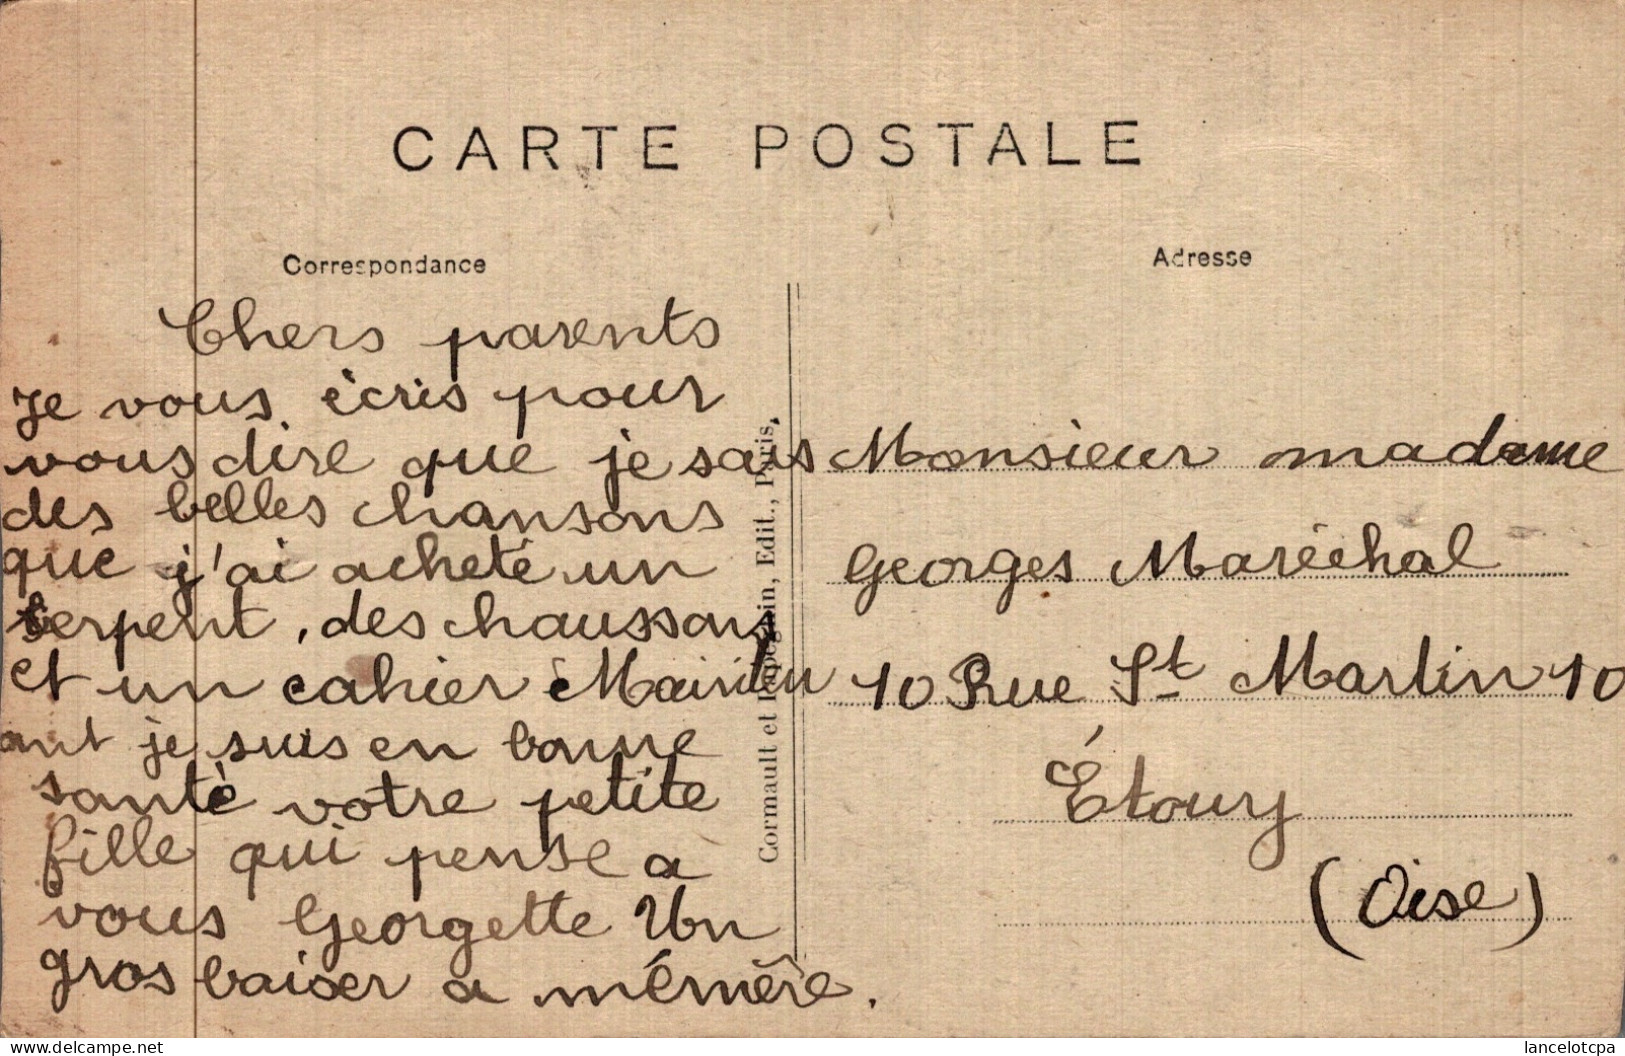 CARTE POSTALE
Correspondance
Chers parents
Je vous écris pour
vous dire que je sais
des belles chansons
que j'ai acheté un
serpent, des chaussons
et un cahier Maintenu
ant je suis en bonne
santé votre petite
fille qui pense a
vous Georgette Un
gros baiser a mémère.
Cormault et Papeghin, Edit., Paris.
Adresse
Monsieur madame
Georges Maréchal
10 Rue St Martin 10
Étouy
(Oise)
lancelotcpa